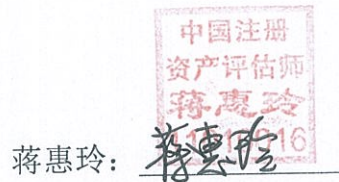 中国注册
资产评估师
蒋惠玲
蒋惠玲：蒋惠玲